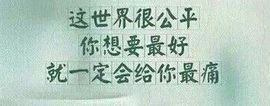 这世界很公平
你想要最好
就一定会给你最痛